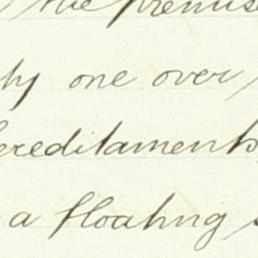 the premise
ly one over
ereditaments
a floating